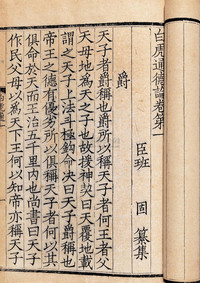 白虎通德論卷第一
臣班 固 纂集
爵
天子者爵稱也爵所以稱天子者何王者父
天母地為天之子也故援神契曰天覆地載
謂之天子上法斗極鉤命決曰天子爵稱也
帝王之德有優劣所以俱稱天子者何以其
俱命於天而王治五千里内也尚書曰天子
作民父母以為天下王何以知帝亦稱天子